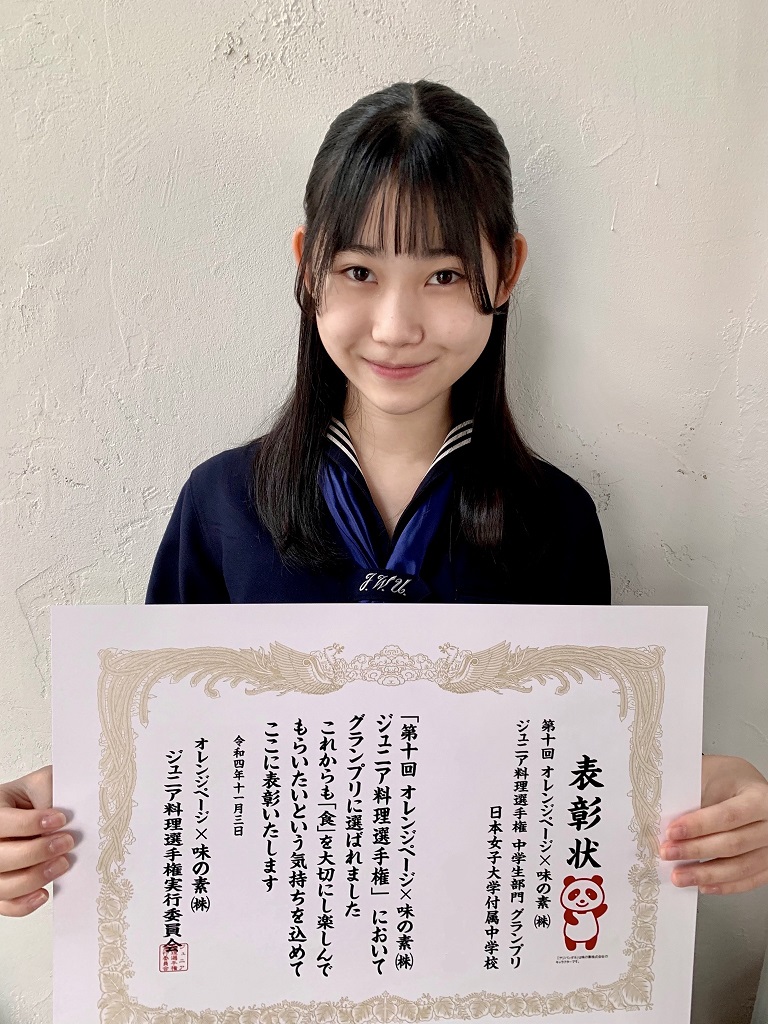 J.W.U.
表彰状
第十回 オレンジページ×味の素㈱
ジュニア料理選手権 中学生部門 グランプリ
日本女子大学付属中学校
「第十回 オレンジページ×味の素㈱
ジュニア料理選手権」において
グランプリに選ばれました
これからも「食」を大切にし楽しんで
もらいたいという気持ちを込めて
ここに表彰いたします
令和四年十一月三日
オレンジページ×味の素㈱
ジュニア料理選手権実行委員会